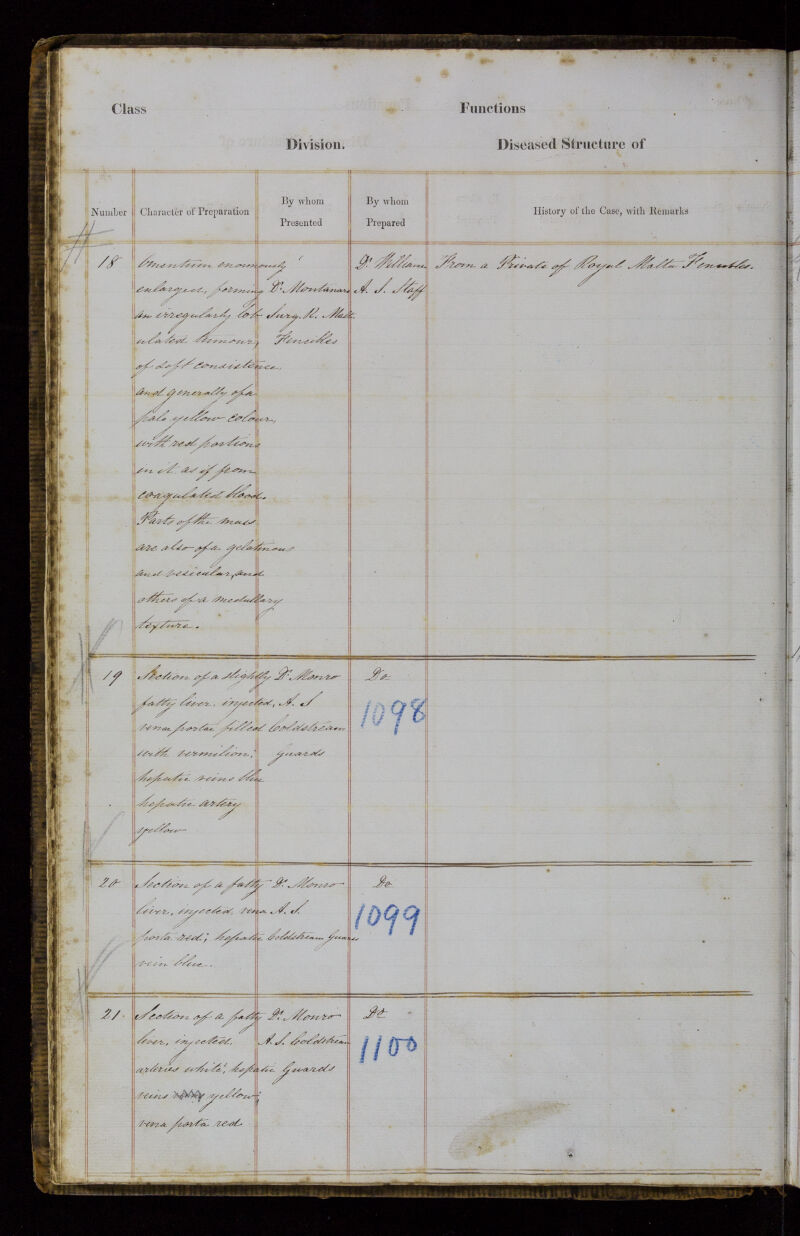 Class Functions
Division. Diseased Structure of
Number Character of Preparation By whom Presented By whom Prepared History of the Case, with Remarks
18 Omentum enormously Dr. William From a Private of Royal Malta Fencibles.
enlarged, forming Dr. Montanaro A. S. Staff
an irregularly lob- Surg. R. Malt.
ulated tumour, Fencibles
of soft consistence
and generally of a
pale yellow colour,
with red portions
in it as if from
coagulated blood.
Parts of the mass
are also of a gelatinous
and vesicular, and
others of a medullary
texture.
19 Section of a slightly Dr. Monro Do
fatty liver injected, A. S
vena portae filled Coldstream 1098
with vermilion; Guards
hepatic veins blue
hepatic artery
yellow
20 Section of a fatty Dr. Monro Do
liver, injected, vena A. S. 1099
porta red; hepatic Coldstream Guards
vein blue.
21 Section of a fatty Dr. Monro Do
liver, injected. A. S. Coldstream 1100
arteries white; hepatic Guards
veins yellow;
vena porta red